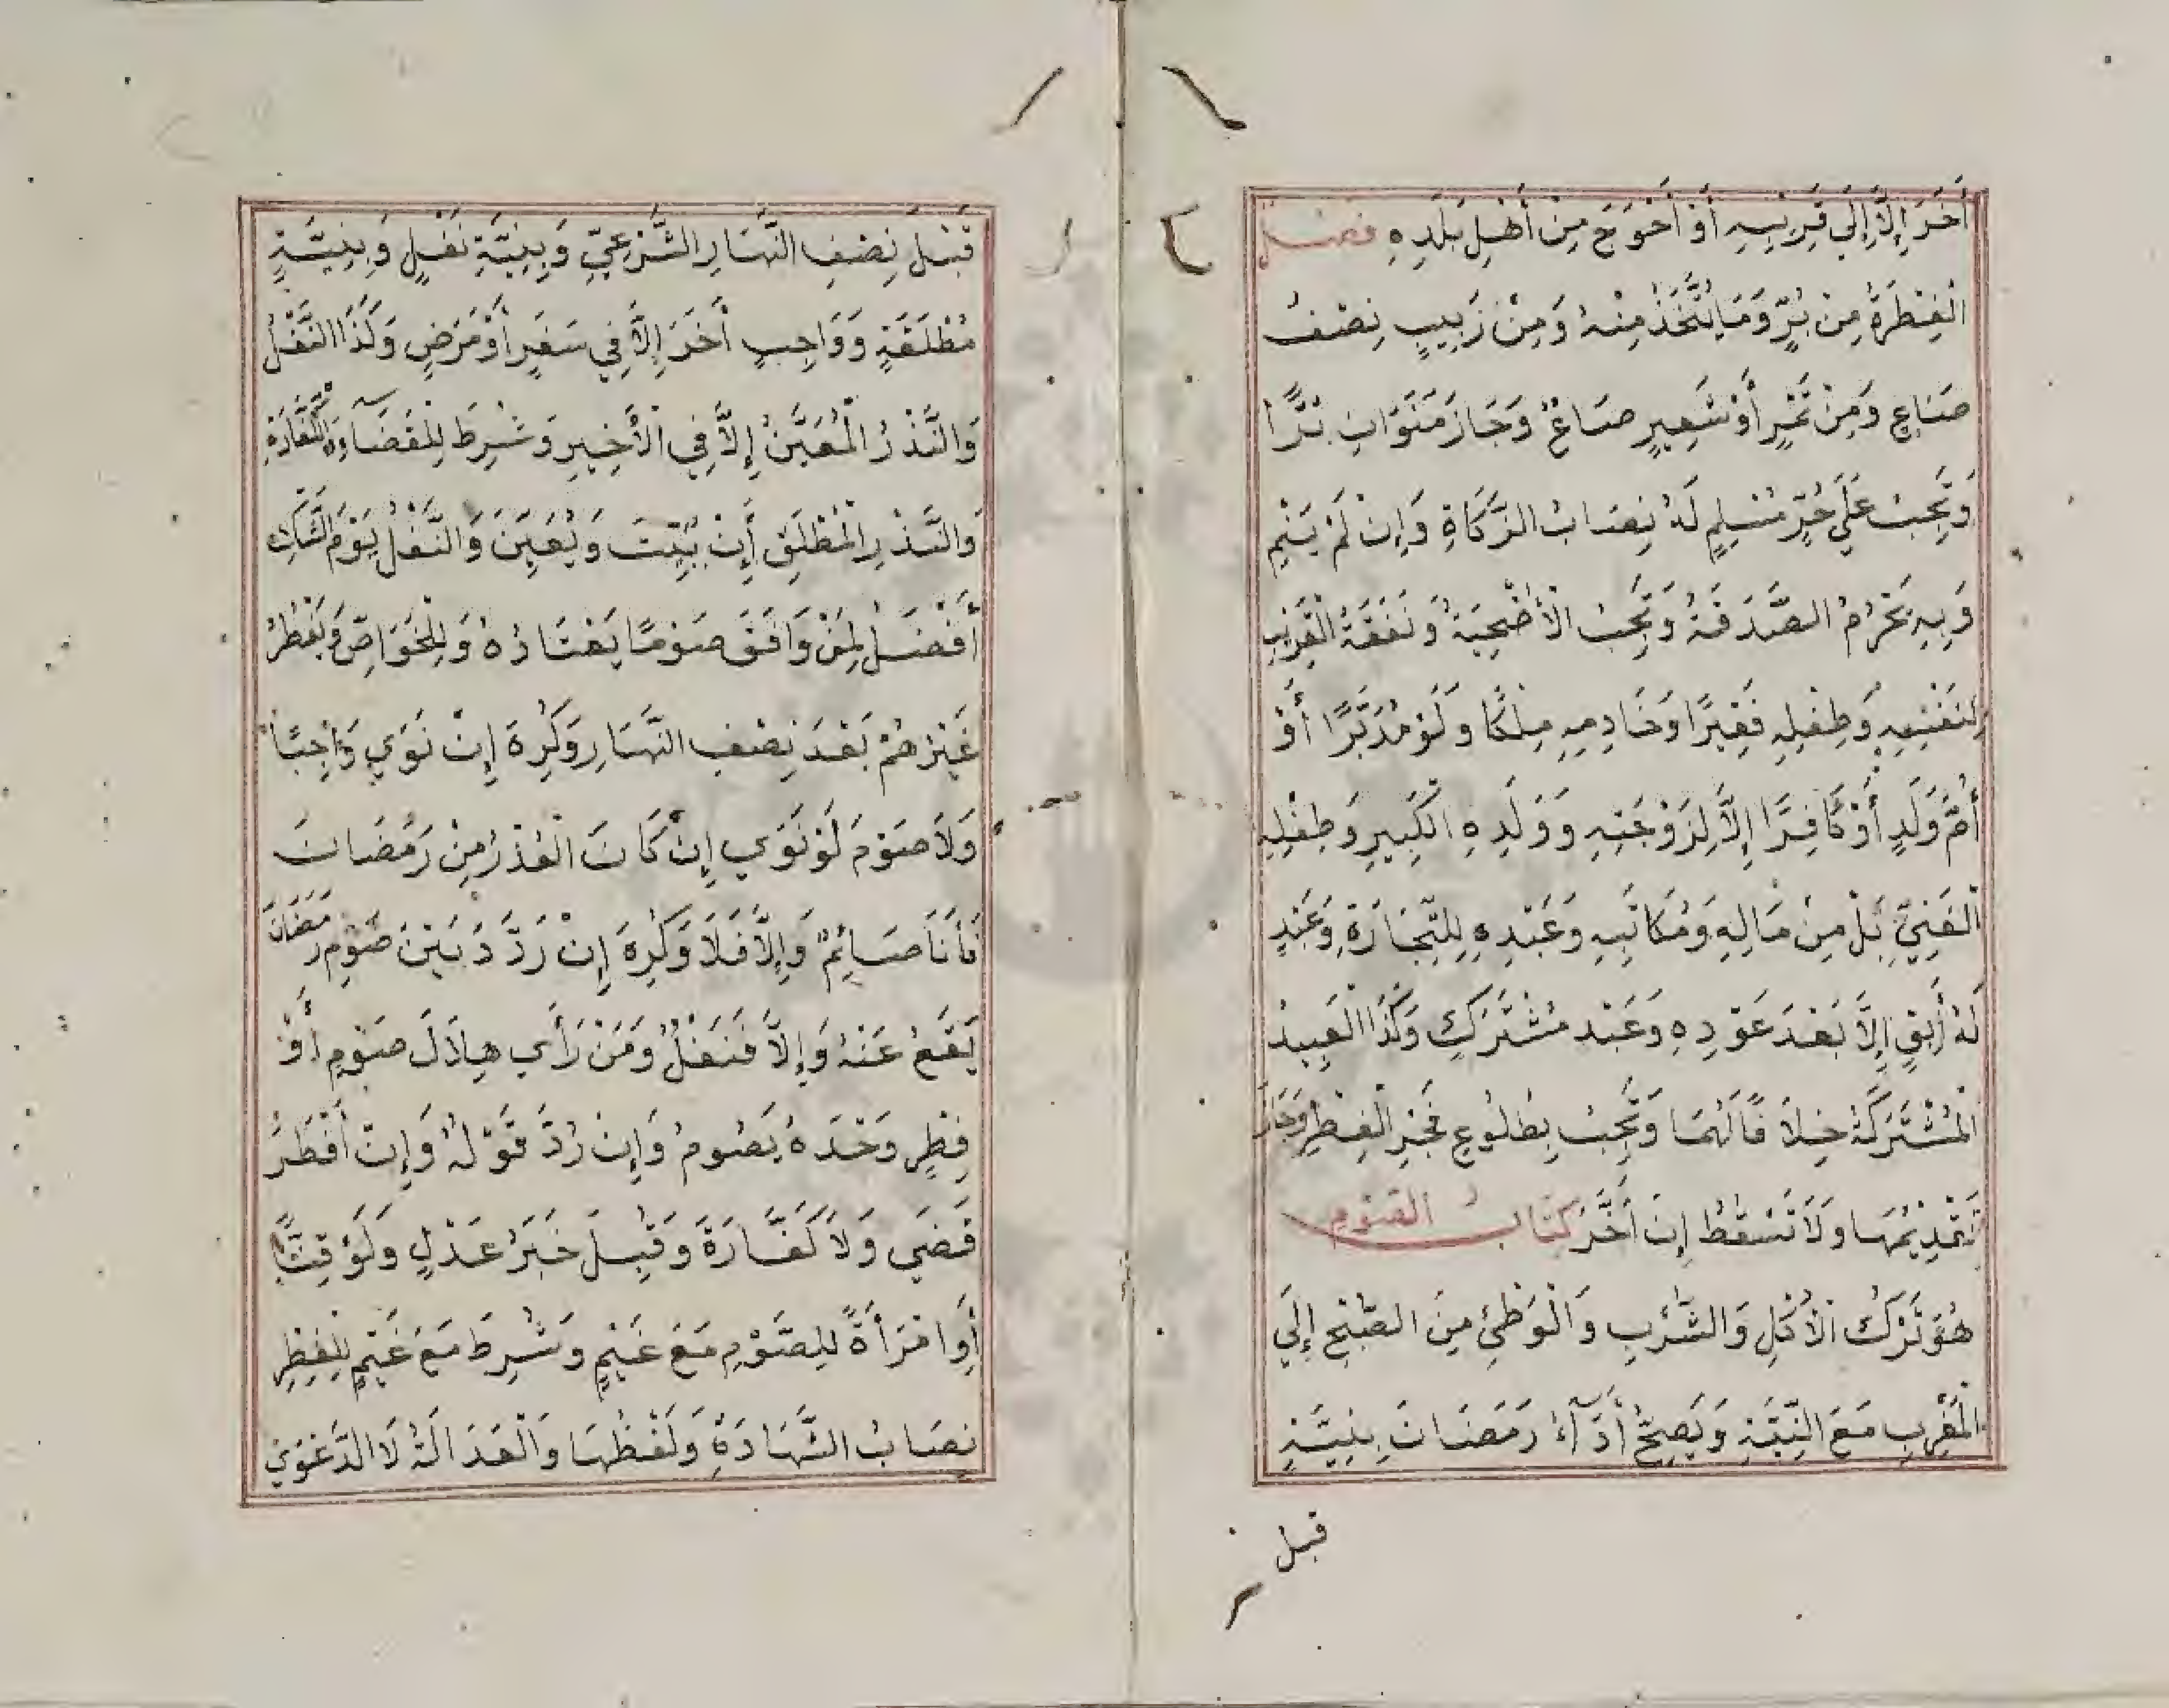 أَخَرَ إِلَّا إِلَى قَرِيْبِهِ أَوْ أَحْوَجَ مِنْ أَهْلِ بَلَدِهِ فصل
الْفِطْرَةُ مِنْ بُرٍّ وَمَا يُتَّخَذُ مِنْهُ وَمِنْ زَبِيبٍ نِصْفُ
صَاعٍ وَمِنْ تَمْرٍ أَوْ شَعِيرٍ صَاعٌ وَجَازَ مَنَوَانِ بُرًّا
وَتَجِبُ عَلَي حُرٍّ مُسْلِمٍ لَهُ نِصَابُ الزَّكَاةِ وَإِنْ لَمْ يَنْمِ
وَبِهِ تَحْرُمُ الصَّدَقَةُ وَتَجِبُ الْأُضْحِيَةُ وَنَفَقَةُ الْقَرِيبِ
لِنَفْسِهِ وَطِفْلِهِ فَقِيْرًا وَخَادِمِهِ مِلْكًا وَلَوْ مُدَبَّرًا أَوْ
أُمَّ وَلَدٍ أَوْ كَافِرًا إِلَّا لِزَوْجَتِهِ وَوَلَدِهِ الْكَبِيرِ وَطِفْلِهِ
الْغَنِيِّ بَلْ مِنْ مَالِهِ وَمُكَاتَبِهِ وَعَبْدِهِ لِلتِّجَارَةِ وَعَبْدٍ
لَهُ أَبِقٍ إِلَّا بَعْدَ عَوْدِهِ وَعَبْد مُشْتَرَكٍ وَكَذَا الْعَبِيدُ
الْمُشْتَرَكَةُ خِلَافًا لَهُمَا وَتَجِبُ بِطُلُوعِ فَجْرِ الْفِطْرِ وَجَازَ
تَقْدِيْمُهَا وَلَا تَسْقُطُ إِنْ أَخَّرَ كتاب الصوم
هُوَ تَرْكُ الْأَكْلِ وَالشُّرْبِ وَالْوَطْئِ مِنَ الصُّبْحِ إِلَي
الْمَغْرِبِ مَعَ النِّيَّةِ وَيَصِحُّ أَدَآءُ رَمَضَانَ بِنِيَّةٍ
قبل
قَبْلَ نِصْفِ النَّهَارِ الشَّرْعِيِّ وَبِنِيَّةِ نَفْلٍ وَبِنِيَّةٍ
مُطْلَقَةٍ وَوَاجِبٍ أَخَرَ إِلَّا فِي سَفَرٍ أَوْ مَرَضٍ وَكَذَا النَّفْلُ
وَالنَّذْرُ الْمُعَيَّنُ إِلَّا فِي الْأَخِيرِ وَشُرِطَ لِلْقَضَآءِ وَالْكَفَّارَةِ
وَالنَّذْرِ الْمُطْلَقِ أَنْ يُبَيِّتَ وَيُعَيِّنَ وَالنَّفْلُ يَوْمَ الشَّكِّ
أَفْضَلُ لِمَنْ وَافَقَ صَوْمًا يَعْتَادُهُ وَلِلْخَوَاصِّ وَيُفْطِرُ
غَيْرُهُمْ بَعْدَ نِصْفِ النَّهَارِ وَكُرِهَ إِنْ نَوَي وَاجِبًا
وَلَا صَوْمَ لَوْ نَوَي إِنْ كَانَ الْغَدُ مِنْ رَمَضَانَ
فَأَنَا صَائِمٌ وَإِلَّا فَلَا وَكُرِهَ إِنْ رَدَّدَ بَيْنَ صَوْمِ رَمَضَانَ
يَقَعُ عَنْهُ وَإِلَّا فَنَفْلٌ وَمَنْ رَأَي هِلَالَ صَوْمٍ أَوْ
فِطْرٍ وَحْدَهُ يَصُومُ وَإِنْ رُدَّ قَوْلُهُ وَإِنْ أَفْطَرَ
قَضَي وَلَا كَفَّارَةَ وَقُبِلَ خَبَرُ عَدْلٍ وَلَوْ قِنًّا
أَوِ امْرَأَةً لِلصَّوْمِ مَعَ غَيْمٍ وَشُرِطَ مَعَ غَيْمٍ لِلْفِطْرِ
نِصَابُ الشَّهَادَةِ وَلَفْظُهَا وَالْعَدَالَةُ لَا الدَّعْوَي